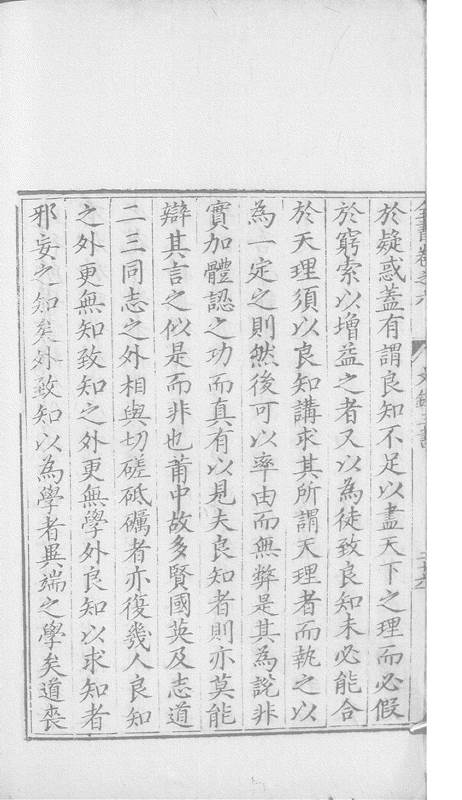 全書卷之六 文錄三書 二十六
於疑惑蓋有謂良知不足以盡天下之理而必假
於窮索以增益之者又以為徒致良知未必能合
於天理須以良知講求其所謂天理者而執之以
為一定之則然後可以率由而無弊是其為說非
實加體認之功而真有以見夫良知者則亦莫能
辯其言之似是而非也莆中故多賢國英及志道
二三同志之外相與切磋砥礪者亦復幾人良知
之外更無知致知之外更無學外良知以求知者
邪妄之知矣外致知以為學者異端之學矣道喪